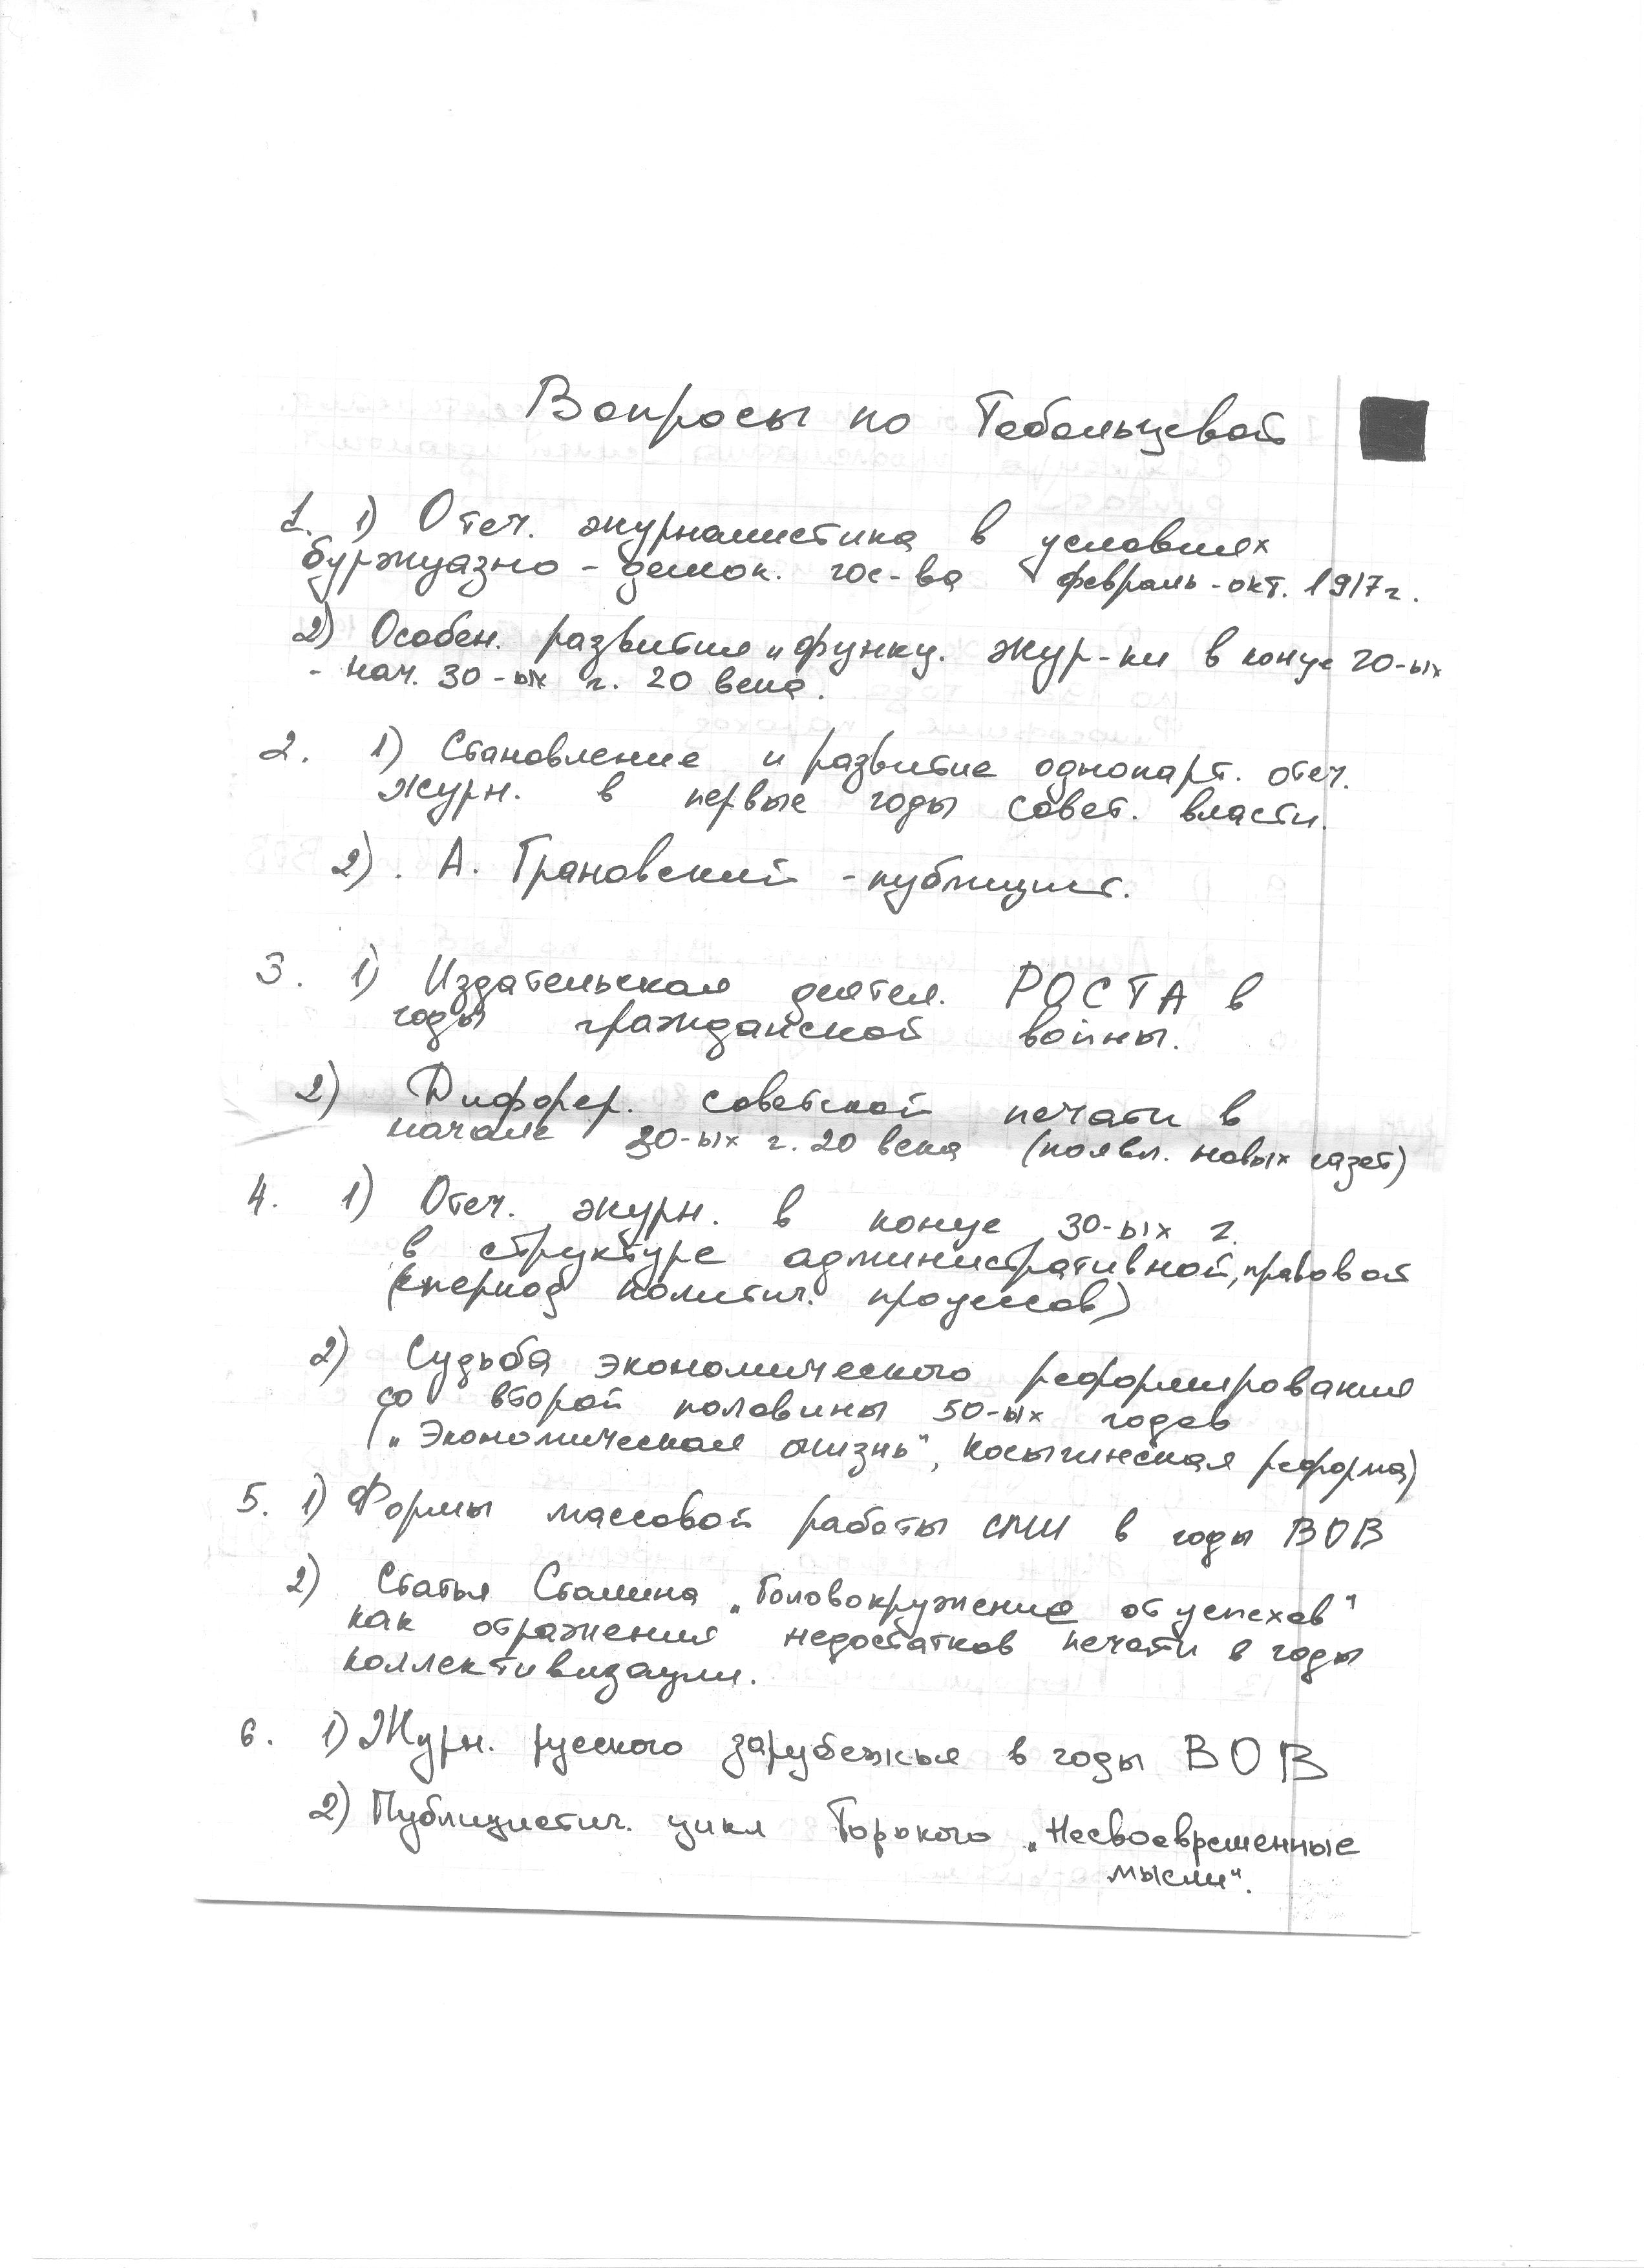 Вопросы по Тобольцевой
1. 1) Отеч. журналистика в условиях
буржуазно - демок. гос-ва февраль - окт. 1917 г.
2) Особен. развития и функц. жур-ки в конце 20-ых
- нач. 30-ых г. 20 века.
2. 1) Становление и развитие однопарт. отеч.
журн. в первые годы совет. власти.
2). А. Грановский - публицист.
3. 1) Издательская деятел. РОСТА в
годы гражданской войны.
2) Диффер. советской печати в
начале 30-ых г. 20 века (появл. новых газет)
4. 1) Отеч. журн. в конце 30-ых г.
в структуре административной, правовой
(период политич. процессов)
2) Судьба экономического реформирования
со второй половины 50-ых годов
(„Экономическая жизнь", косыгинская реформа)
5. 1) Формы массовой работы СМИ в годы ВОВ
2) Статья Сталина „Головокружение от успехов"
как отражения недостатков печати в годы
коллективизации.
6. 1) Журн. русского зарубежья в годы ВОВ
2) Публицистич. цикл Горького „Несвоевременные
мысли".